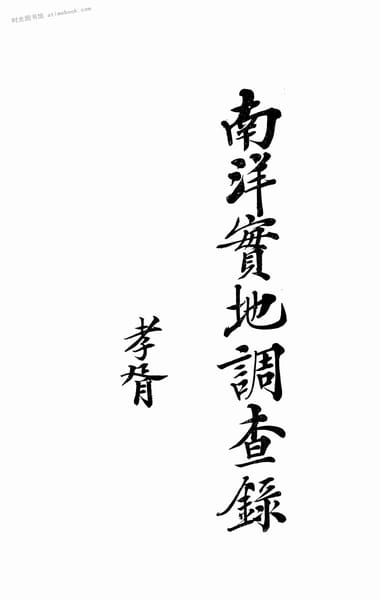 时光图书馆 atimebook.com
南洋實地調查錄
孝胥